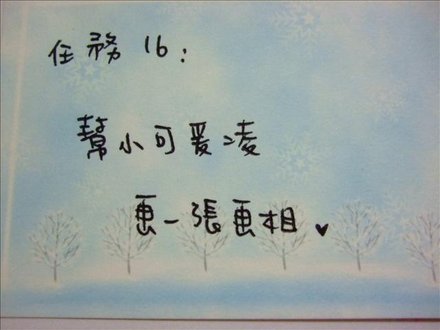 任務16:
幫小可愛凌
画一張画相♥